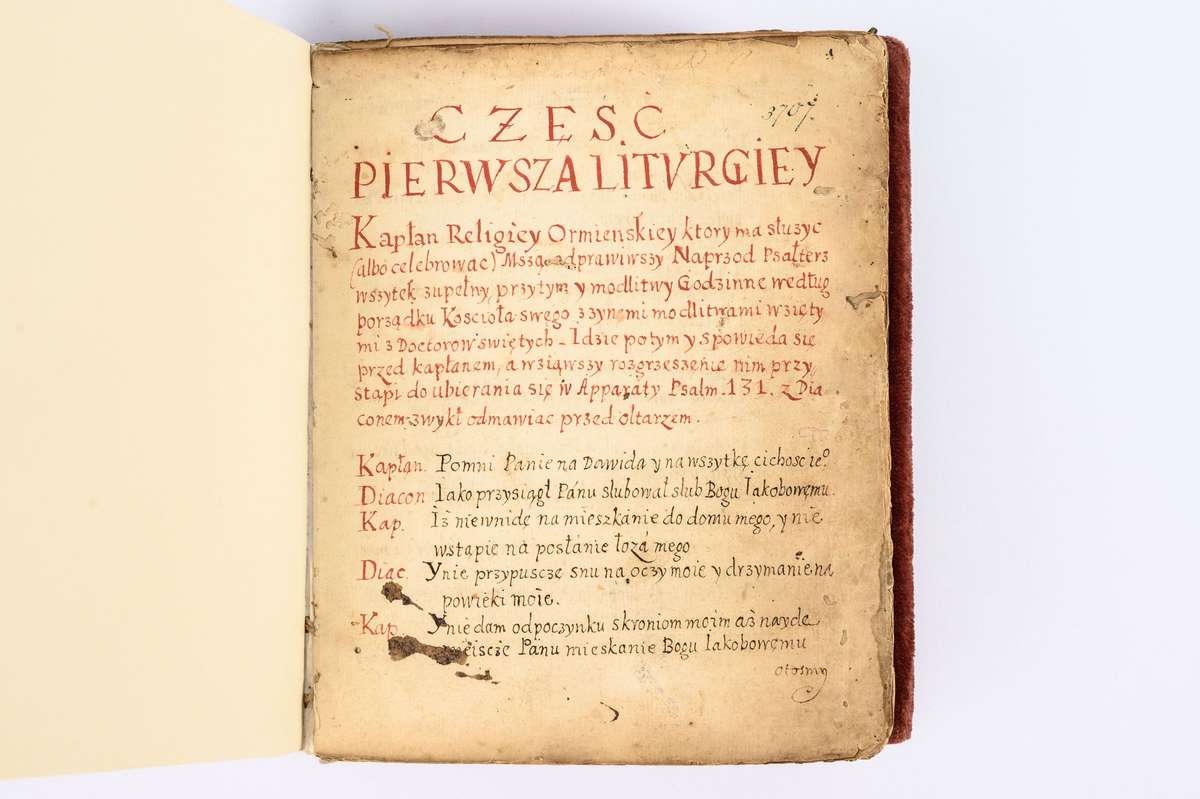 CZĘSC
3707.
PIERWSZA LITVRGIEY
Kapłan Religiey Ormieńskiey ktory ma słuzyc
(albo celebrowac) Mszą odprawiwszy Naprzod Psałterz
wszytek zupełny, przytym y modlitwy Godzinne według
porządku Koscioła swego z zynemi modlitwami wzięty
mi z Doctorow swiętych. Idzie potym y spowieda się
przed kapłanem, a wziąwszy rozgrzeszenie nim przy,
stąpi do ubierania się w Apparaty Psalm. 131. z Dia
conem zwykł odmawiac przed ołtarzem.
Kapłan. Pomni Panie na Dawida y na wszytkę cichoscie°
Diacon Iako przysiągł Pánu slubował slub Bogu Iakobowemu.
Kap. Iż niewnidę na mieszkanie do domu mego, y nie
wstąpie na posłanie łozá mego
Diac. Y nie przypuszczę snu na oczy moie y drzymanie na
powieki moie.
Kap Y nie dam odpoczynku skroniom moim aż naydę
mieiscze Pánu mieskanie Bogu Iakobowemu
otosmy